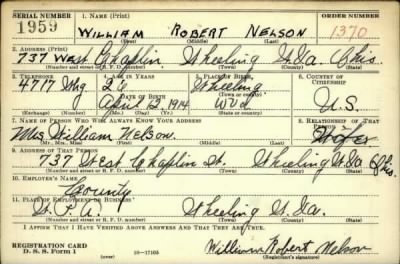 SERIAL NUMBER 1. NAME (Print) ORDER NUMBER
1959 WILLIAM ROBERT NELSON 1370
(First) (Middle) (Last)
2. ADDRESS (Print)
737 West Chaplin Wheeling W.Va. Ohio.
(Number and street or R. F. D. number) (Town) (County) (State)
3. TELEPHONE 4. AGE IN YEARS 5. PLACE OF BIRTH 6. COUNTRY OF CITIZENSHIP
4717 Whg Wheeling
DATE OF BIRTH
April 12, 1914 W Va U.S.
(Exchange) (Number) (Mo.) (Day) (Yr.) (State or country)
7. NAME OF PERSON WHO WILL ALWAYS KNOW YOUR ADDRESS 8. RELATIONSHIP OF THAT PERSON
Mrs William Nelson. Wife
(Mr., Mrs., Miss) (First) (Middle) (Last)
9. ADDRESS OF THAT PERSON
737 West Chaplin St. Wheeling W.Va Ohio.
(Number and street or R. F. D. number) (Town) (County) (State)
10. EMPLOYER'S NAME
County
11. PLACE OF EMPLOYMENT OR BUSINESS
W.P.A. Wheeling W.Va.
(Number and street or R. F. D. number) (Town) (County) (State)
I AFFIRM THAT I HAVE VERIFIED ABOVE ANSWERS AND THAT THEY ARE TRUE.
REGISTRATION CARD
D. S. S. Form 1 16—17105 William Robert Nelson
(over) (Registrant's signature)